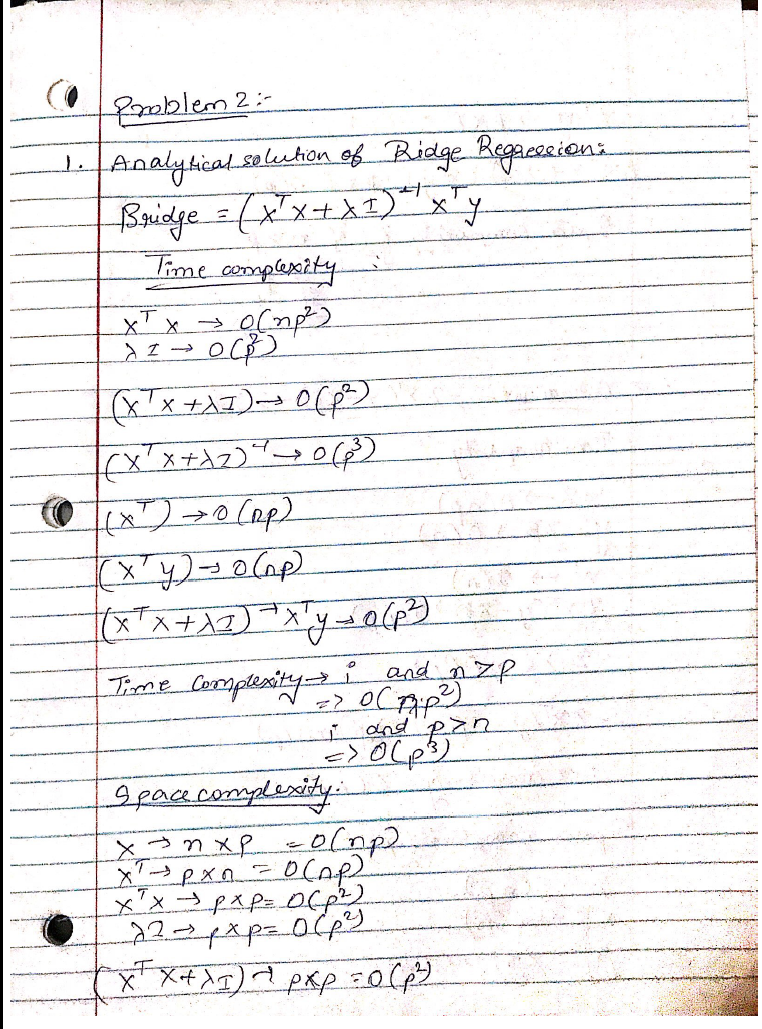 Problem 2:-
1. Analytical solution of Ridge Regression:
Bridge = (X^T X + λI)^-1 X^T y
Time complexity :
X^T X → O(np^2)
λI → O(p^2)
(X^T X + λI) → O(p^2)
(X^T X + λI)^-1 → O(p^3)
(X^T) → O(np)
(X^T y) → O(np)
(X^T X + λI)^-1 X^T y → O(p^2)
Time Complexity → i and n > p
=> O(n·p^2)
i and p > n
=> O(p^3)
Space complexity:
X → n x p = O(np)
X^T → p x n = O(np)
X^T X → p x p = O(p^2)
λI → p x p = O(p^2)
(X^T X + λI)^-1 p x p = O(p^2)